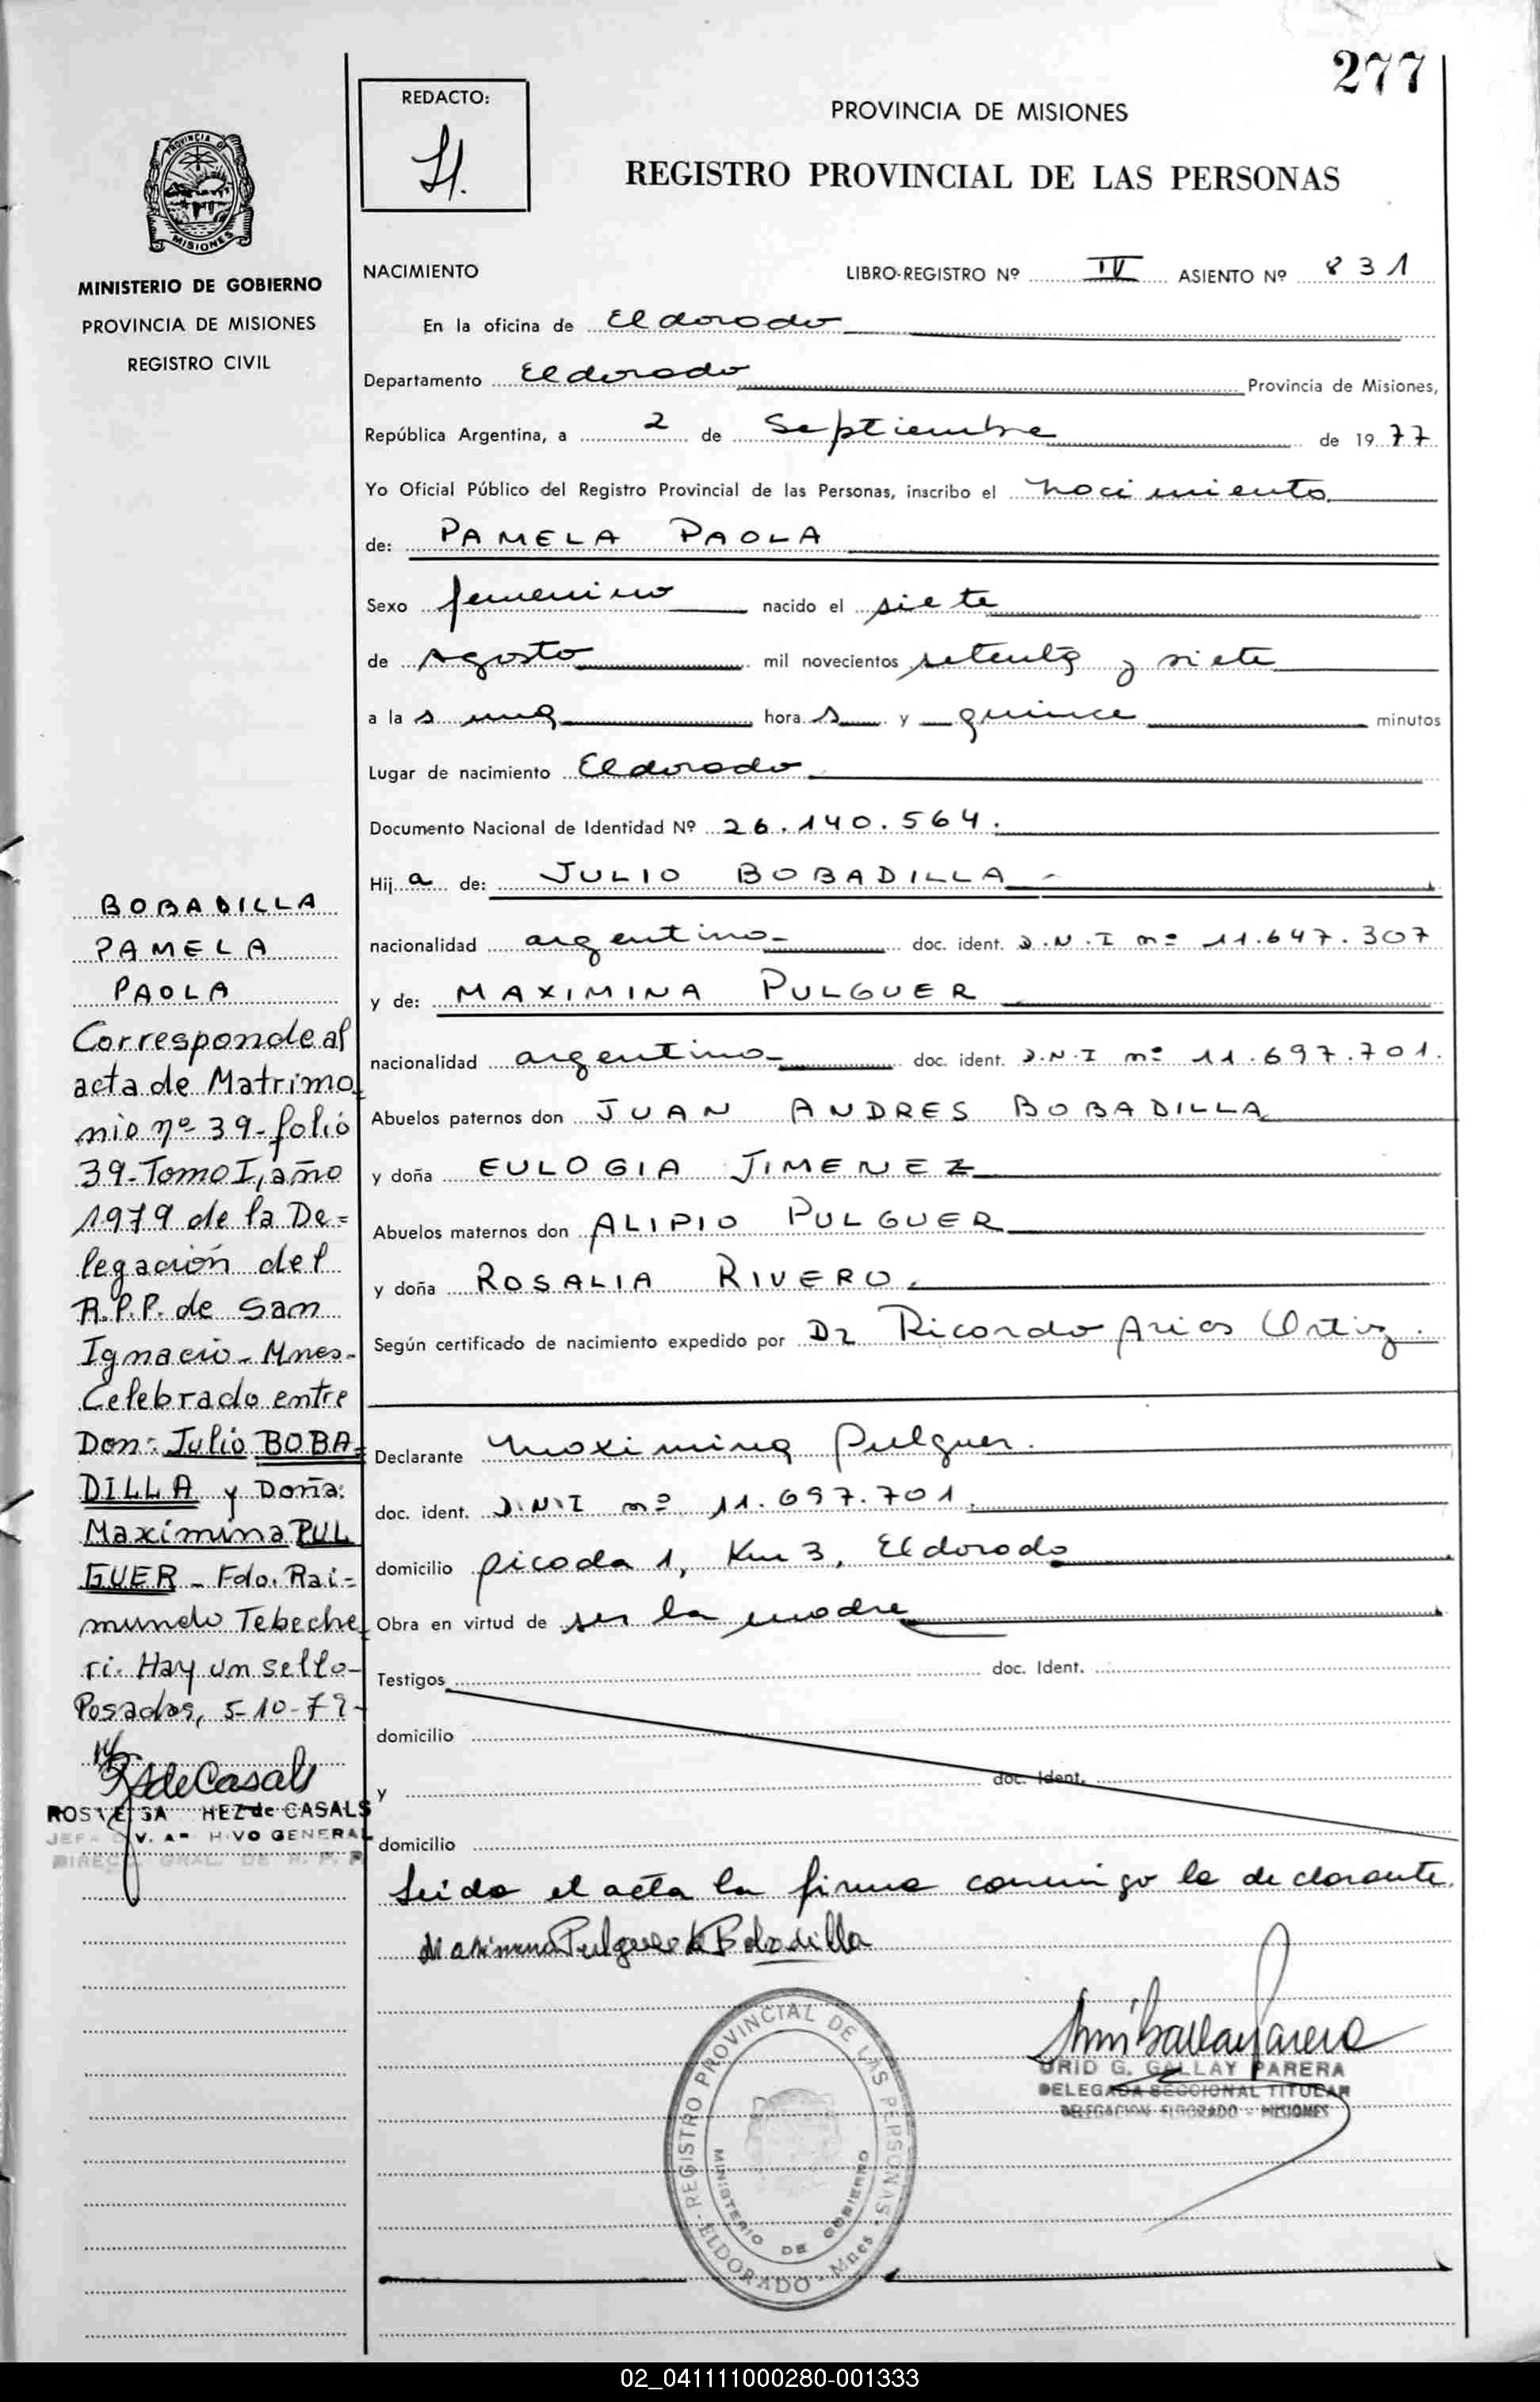 277
REDACTO:
PROVINCIA DE MISIONES
REGISTRO PROVINCIAL DE LAS PERSONAS
PROVINCIA DE
MISIONES
MINISTERIO DE GOBIERNO
PROVINCIA DE MISIONES
REGISTRO CIVIL
NACIMIENTO LIBRO-REGISTRO Nº IV ASIENTO Nº 831
En la oficina de Eldorado
Departamento Eldorado Provincia de Misiones,
República Argentina, a 2 de Septiembre de 1977
Yo Oficial Público del Registro Provincial de las Personas, inscribo el nacimiento
de: PAMELA PAOLA
Sexo femenino nacido el siete
de Agosto mil novecientos setenta y siete
a la s una hora s y quince minutos
Lugar de nacimiento Eldorado
Documento Nacional de Identidad Nº 26.140.564.
Hij a de: JULIO BOBADILLA -
nacionalidad argentino- doc. ident. D.N.I nº 11.647.307
y de: MAXIMINA PULGUER
nacionalidad argentina- doc. ident. D.N.I nº 11.697.701.
Abuelos paternos don JUAN ANDRES BOBADILLA
y doña EULOGIA JIMENEZ
Abuelos maternos don ALIPIO PULGUER
y doña ROSALIA RIVERO.
Según certificado de nacimiento expedido por Dr Ricardo Arias Ortiz.
Declarante Maximina Pulguer.
doc. ident. D.N.I nº 11.697.701.
domicilio picada 1, Km 3, Eldorado
Obra en virtud de ser la madre
Testigos doc. Ident.
domicilio
y doc. Ident.
domicilio
Leida el acta la firma conmigo la declarante.
Maximina Pulguer de Bobadilla
BOBADILLA
PAMELA
PAOLA
Corresponde al
acta de Matrimo
nio nº 39-folio
39-Tomo I, año
1979 de la De=
legación del
R.P.P. de San
Ignacio-Mnes-
Celebrado entre
Don: Julio BOBA=
DILLA y Doña:
Maximina PUL
GUER - Fdo. Rai=
mundo Tebeche
ri. Hay un sello-
Posadas, 5-10-79-
de Casals
HEZ de CASALS
HIVO GENERAL
GRAL. DE R. P. P.
REGISTRO PROVINCIAL DE LAS PERSONAS
MINISTERIO DE GOBIERNO
ELDORADO - Mnes
G. GALLAY PARERA
DELEGADA SECCIONAL TITULAR
DELEGACION ELDORADO - MISIONES
02_041111000280-001333